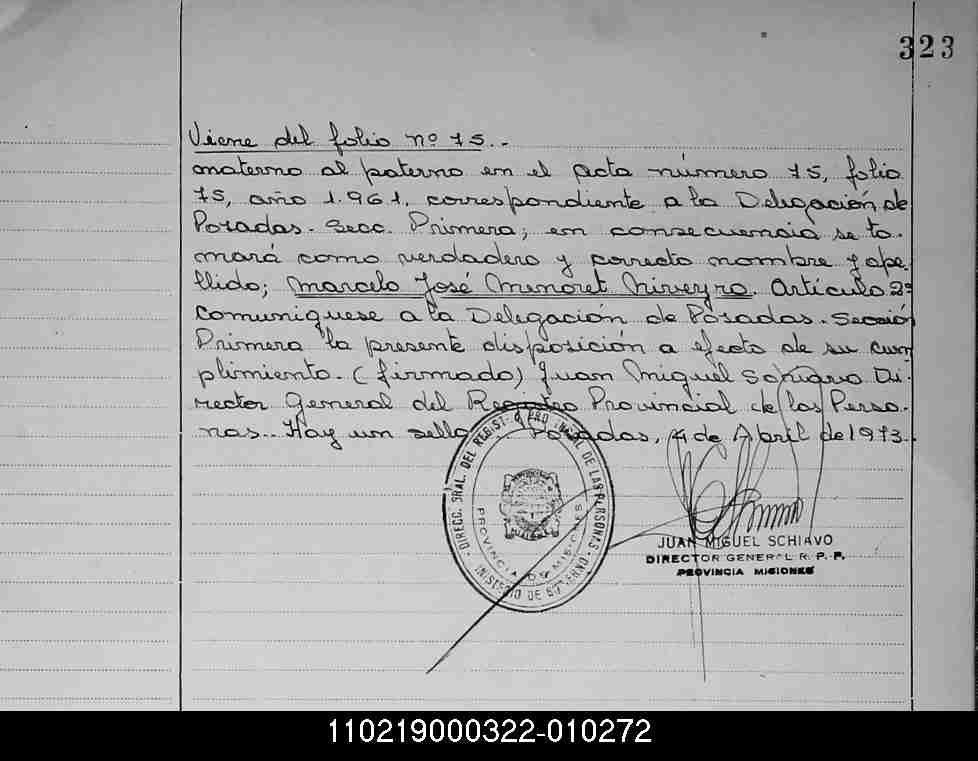 323
Viene del folio nº 75.-
materno al paterno en el Acta número 75, folio
75, año 1.961, correspondiente a la Delegación de
Posadas. Secc. Primera; en consecuencia se to-
mará como verdadero y correcto nombre y ape-
llido; Marcelo José Menoret Nirveyro. Artículo 2º
Comuníquese a la Delegación de Posadas. Sección
Primera la presente disposición a efecto de su cum
plimiento. (firmado) Juan Miguel Schiavo Di-
rector General del Registro Provincial de las Perso-
nas.. Hay un sello Posadas, 4 de Abril de 1973.
DIRECC. GRAL. DEL REGIST. PRO. DE LAS PERSONAS
PROVINCIA DE MISIONES
MINISTERIO DE GOBIERNO
JUAN MIGUEL SCHIAVO
DIRECTOR GENERAL R. P. P.
PROVINCIA MISIONES
110219000322-010272